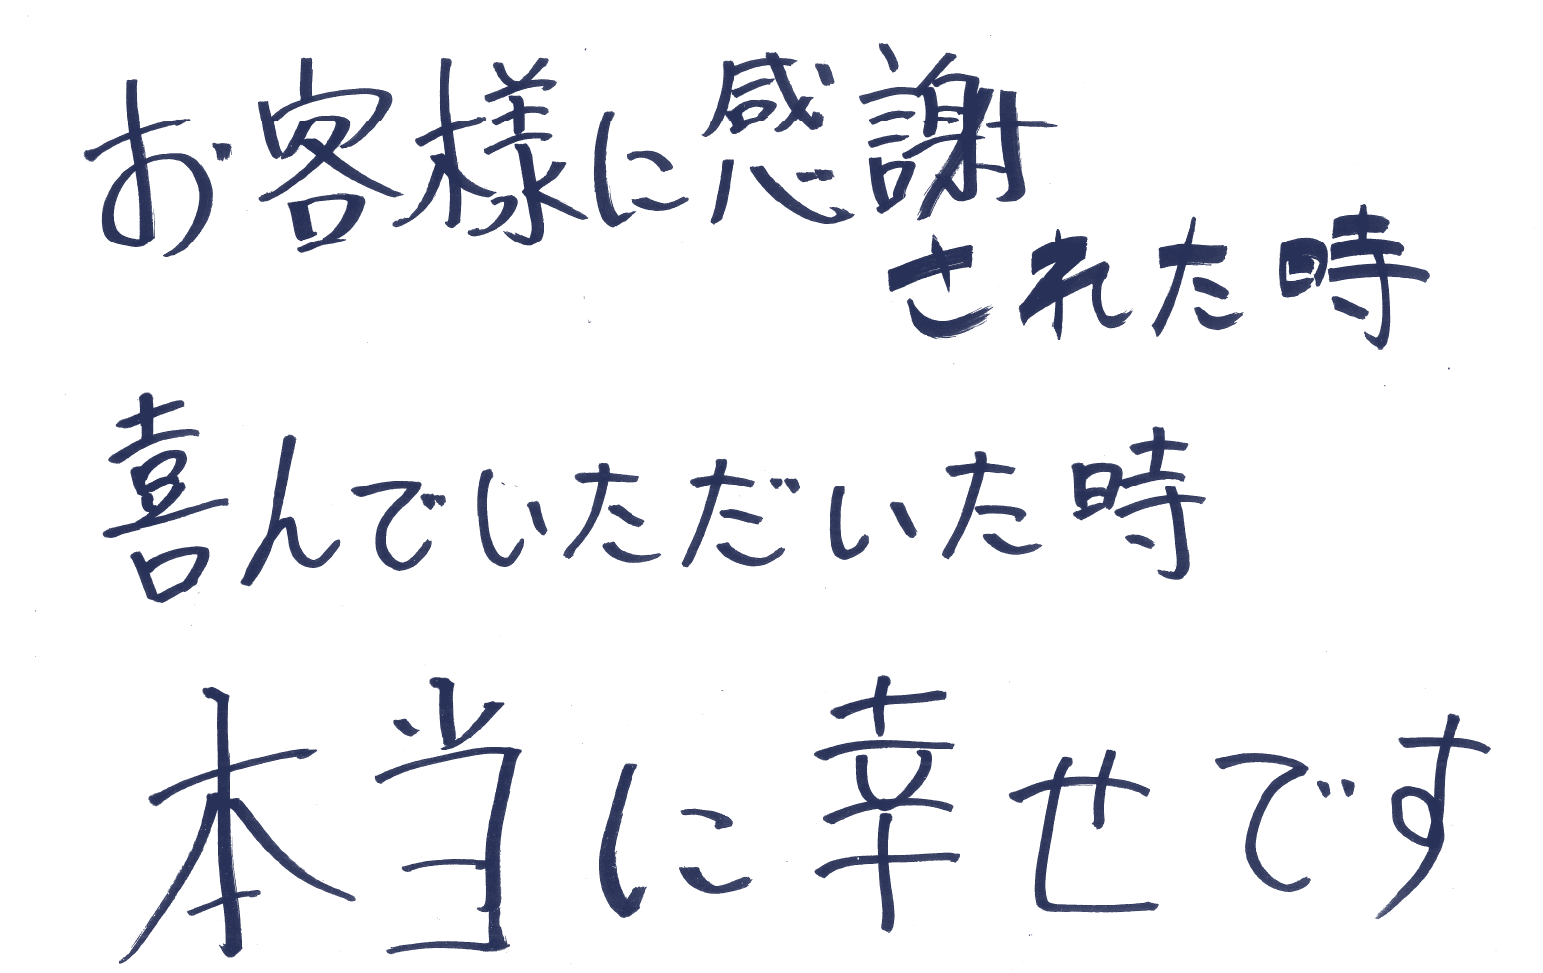 お客様に感謝
された時
喜んでいただいた時
本当に幸せです